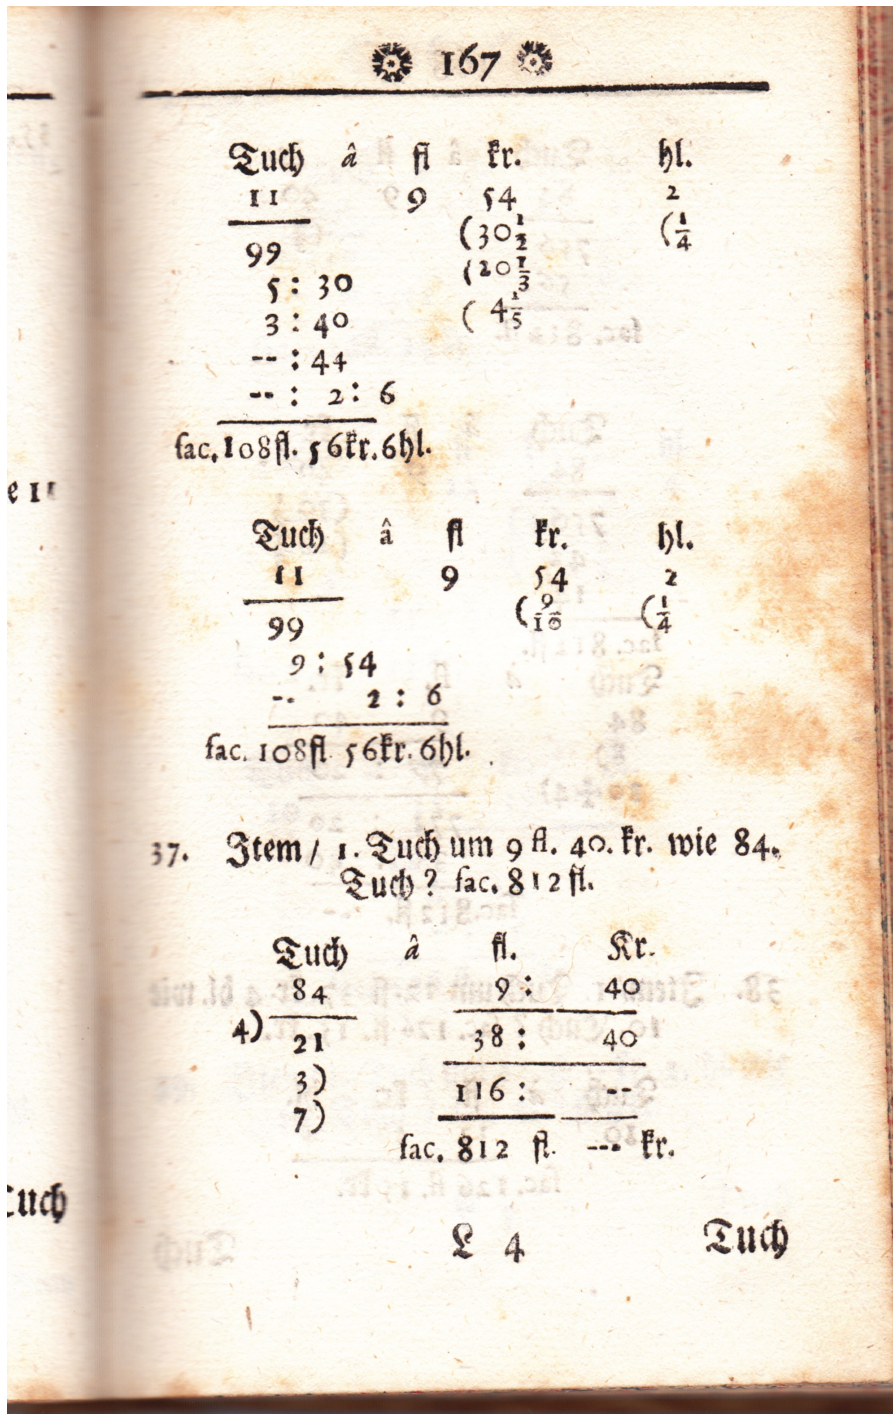 167
Tuch â fl kr. hl.
11 9 54 2
(30 1/2 (1/4
99 (20 1/3
5 : 30 ( 4 1/5
3 : 40
-- : 44
-- : 2 : 6
fac. 108fl. 56kr. 6hl.
Tuch â fl kr. hl.
11 9 54 2
(9/10 (1/4
99
9 : 54
-- 2 : 6
fac. 108fl 56kr. 6hl.
37. Item / 1. Tuch um 9 fl. 40. kr. wie 84.
Tuch ? fac. 812 fl.
Tuch â fl. Kr.
84 9 : 40
4) 21 38 : 40
3) 116 : --
7)
fac. 812 fl. --- kr.
L 4 Tuch